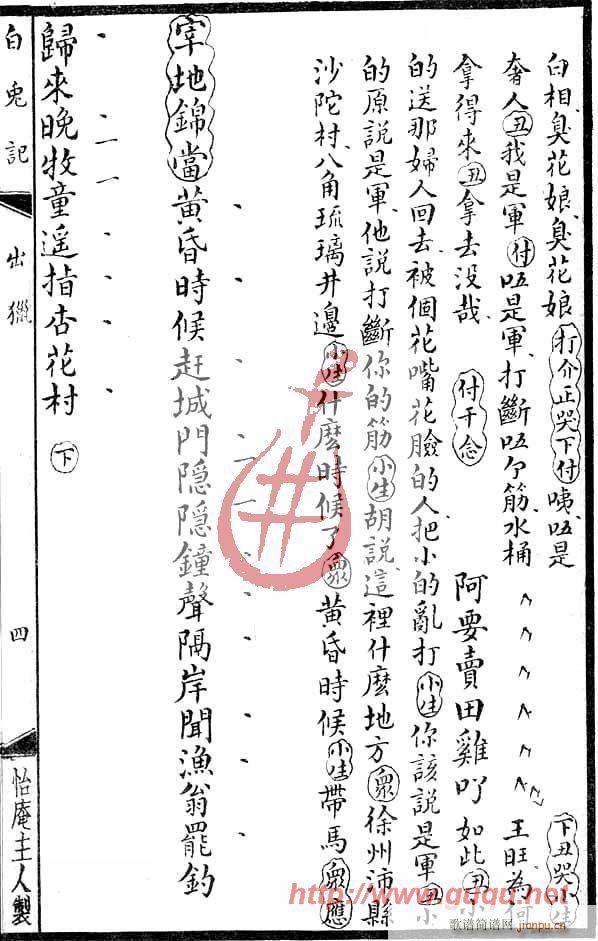 白相臭花娘臭花娘打介正哭下付咦唔是
下丑哭小生
奢人丑我是軍付唔是軍打斷唔个筋水桶
王旺為何
拿得來丑拿去没哉 付干念 阿要賣田雞吖如此丑小
的送那婦人回去被個花嘴花臉的人把小的亂打小生你該說是軍丑小
的原說是軍他說打斷你的筋小生胡說這裡什麽地方眾徐州沛縣
沙陀村八角琉璃井邊小生什麽時候了眾黃昏時候小生帶馬眾應
宰地錦當黃昏時候赶城門隱隱鐘聲隔岸聞漁翁罷釣
歸來晚牧童遥指杏花村 下
白兎記 出獵 四 怡庵主人製
http://www.guqu.net
歌谱简谱网
jianpu.cn